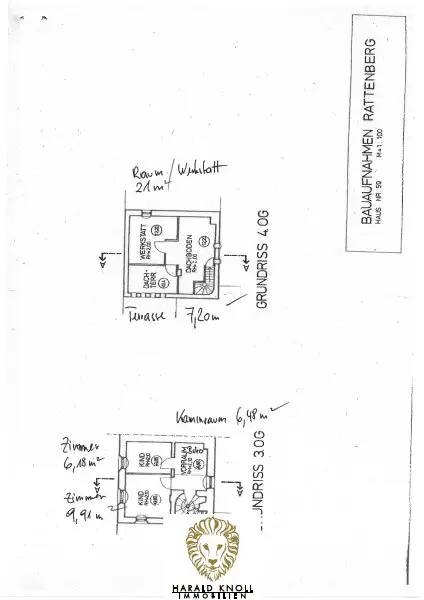 BAUAUFNAHMEN RATTENBERG
HAUS NR. 59 M=1:100
Raum/Werkstatt
21 m²
WERKSTATT
DACHBODEN
DACH-
TERR.
GRUNDRISS 4.OG
Terrasse 7,20m
Kaminraum 6,48 m²
Zimmer
6,18 m²
Zimmer
9,91 m²
KIND
VORRAUM
KIND
UNDRISS 3.OG
HARALD KNOLL
IMMOBILIEN